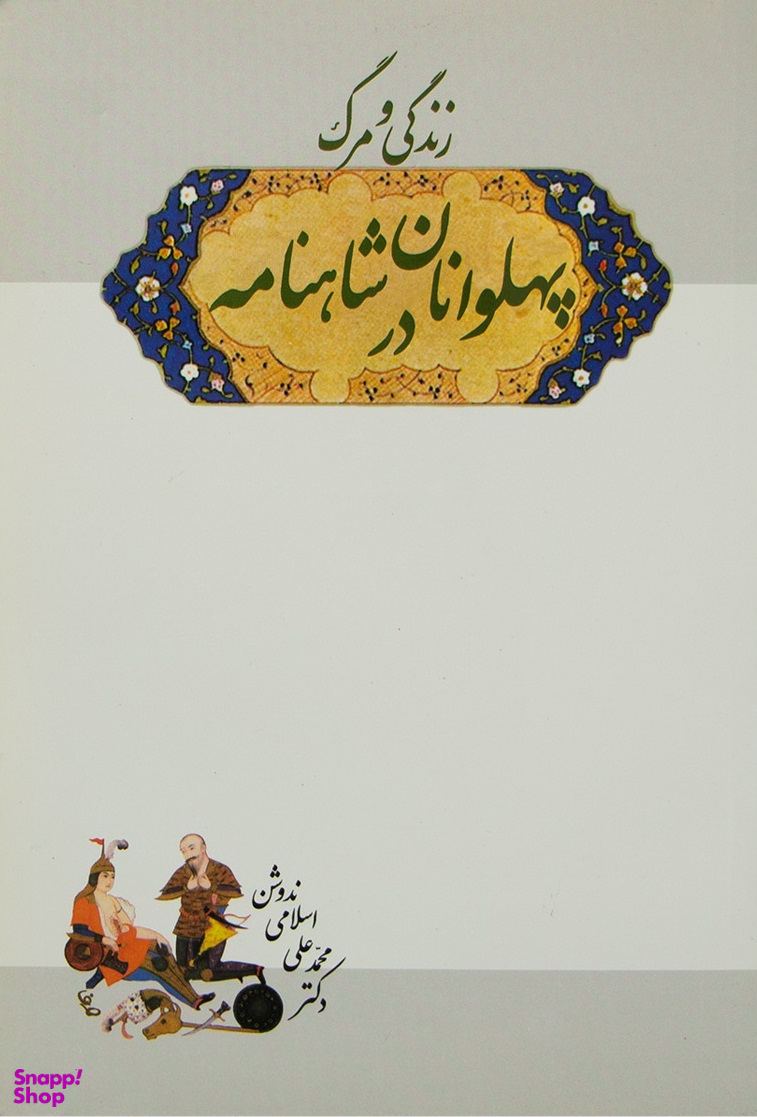 زندگی و مرگ
پهلوانان
در شاهنامه
دکتر
محمّد علی
اسلامی
ندوشن
Snapp!
Shop